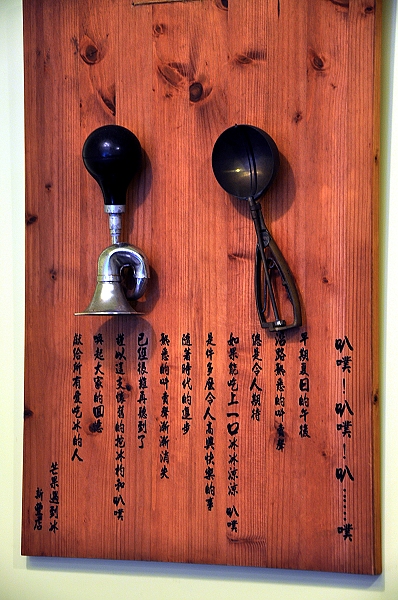 叭噗!叭噗!叭……噗
早期夏日的午後
沿路熟悉的叭噗聲
總是令人期待
如果能吃上一口冰冰涼涼 叭噗
是件多麼令人高興快樂的事
隨著時代的進步
熟悉的叭噗聲漸漸消失
已經很難再聽到了
謹以這支傳舊的挖冰杓和叭噗
喚起大家的回憶
獻給所有愛吃冰的人
芒果遇到冰
新店